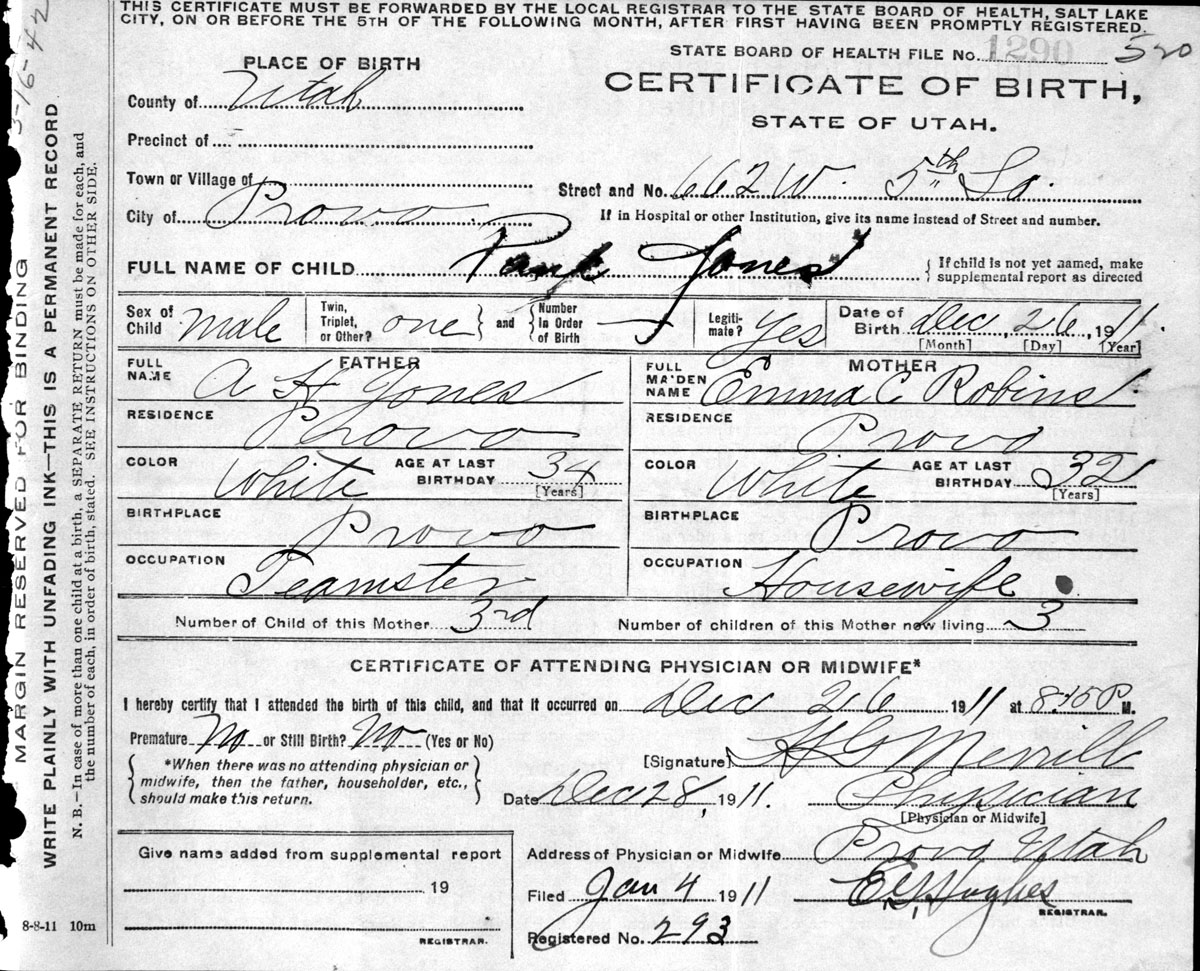 THIS CERTIFICATE MUST BE FORWARDED BY THE LOCAL REGISTRAR TO THE STATE BOARD OF HEALTH, SALT LAKE
CITY, ON OR BEFORE THE 5TH OF THE FOLLOWING MONTH, AFTER FIRST HAVING BEEN PROMPTLY REGISTERED.
3-16-42
MARGIN RESERVED FOR BINDING
WRITE PLAINLY WITH UNFADING INK—THIS IS A PERMANENT RECORD
N. B.—In case of more than one child at a birth, a SEPARATE RETURN must be made for each, and
the number of each, in order of birth, stated. SEE INSTRUCTIONS ON OTHER SIDE.
STATE BOARD OF HEALTH FILE No. 1290 520
PLACE OF BIRTH
CERTIFICATE OF BIRTH,
STATE OF UTAH.
County of Utah
Precinct of
Town or Village of
Street and No. 662 W. 5th So.
City of Provo
If in Hospital or other Institution, give its name instead of Street and number.
FULL NAME OF CHILD Paul Jones
If child is not yet named, make
supplemental report as directed
Sex of Child male
Twin, Triplet, or Other? one
and Number in Order of Birth
Legitimate? Yes
Date of Birth Dec, 26, 1911.
[Month] [Day] [Year]
FATHER
FULL NAME A H Jones
RESIDENCE Provo
COLOR White AGE AT LAST BIRTHDAY 34 [Years]
BIRTHPLACE Provo
OCCUPATION Teamster
MOTHER
FULL MAIDEN NAME Emma C Robins
RESIDENCE Provo
COLOR White AGE AT LAST BIRTHDAY 32 [Years]
BIRTHPLACE Provo
OCCUPATION Housewife
Number of Child of this Mother 3rd Number of children of this Mother now living 3
CERTIFICATE OF ATTENDING PHYSICIAN OR MIDWIFE*
I hereby certify that I attended the birth of this child, and that it occurred on Dec 26 1911 at 8:15 P M.
Premature No or Still Birth? No (Yes or No)
*When there was no attending physician or
midwife, then the father, householder, etc.,
should make this return.
[Signature] H G Merrill
Date Dec 28, 1911. Physician
[Physician or Midwife]
Give name added from supplemental report
19
REGISTRAR.
Address of Physician or Midwife Provo Utah
Filed Jan 4 1911 Hughes
REGISTRAR.
Registered No. 293
8-8-11 10m